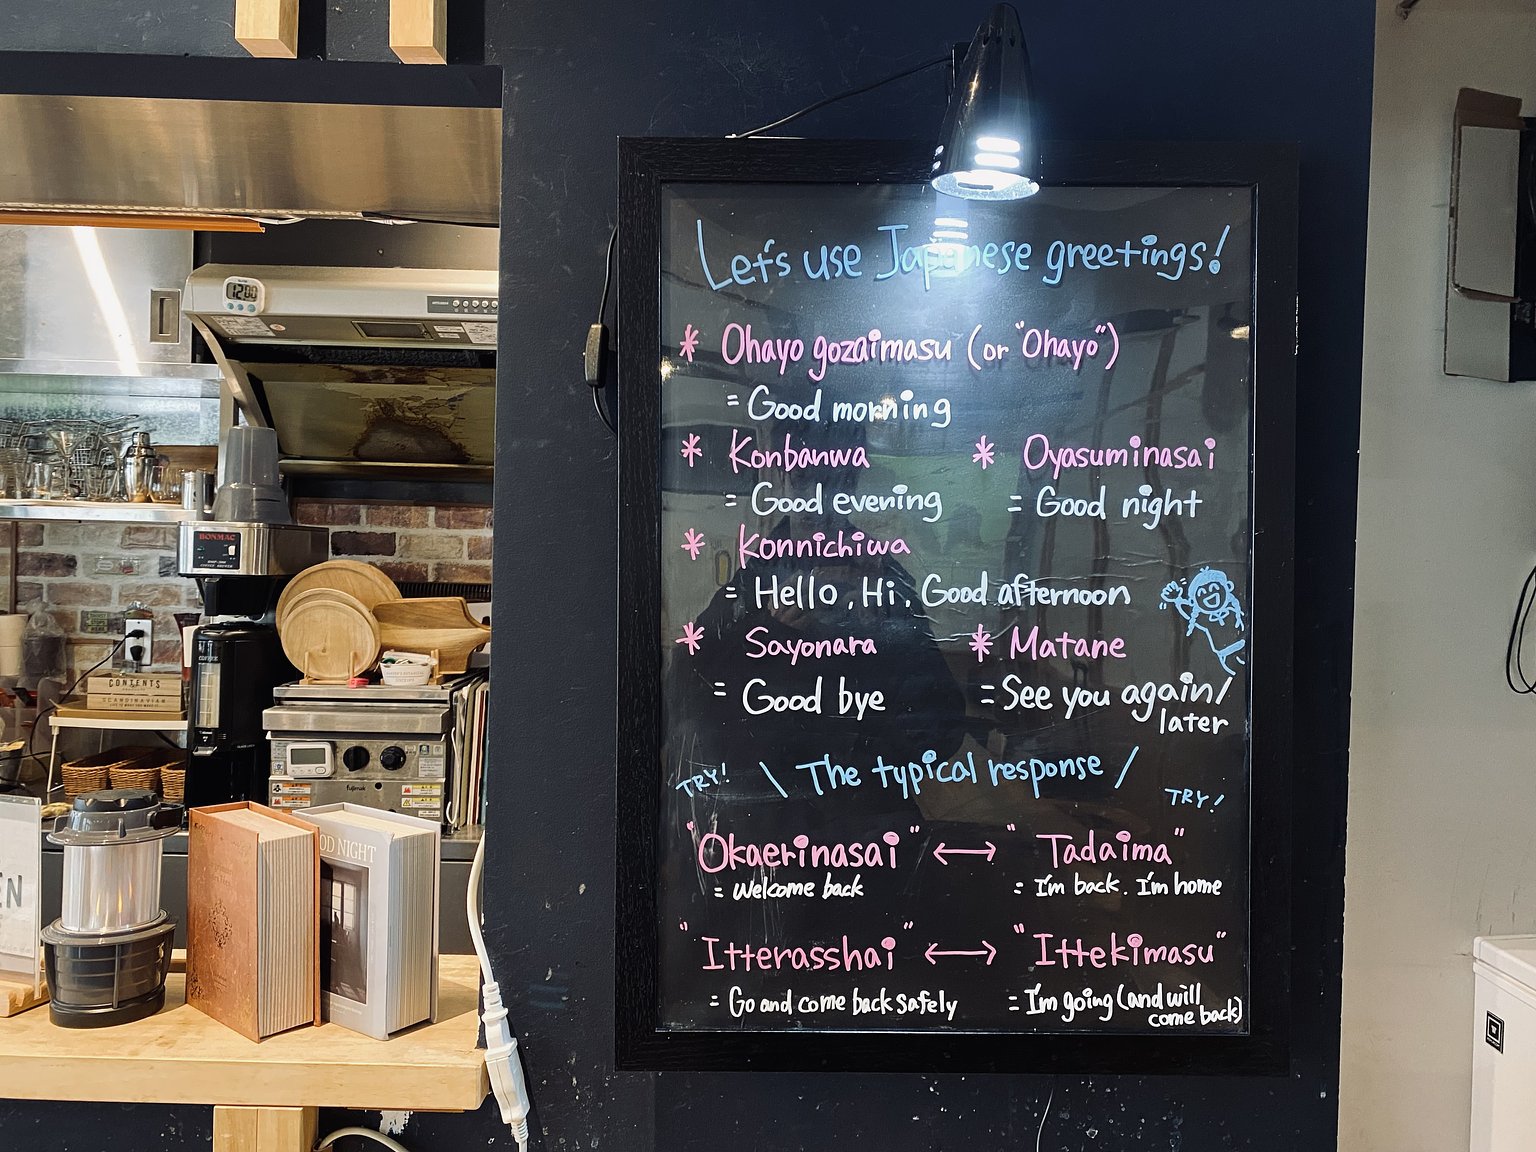 Let's use Japanese greetings!
* Ohayo gozaimasu (or "Ohayo")
= Good morning
* Konbanwa
= Good evening
* Oyasuminasai
= Good night
* Konnichiwa
= Hello, Hi, Good afternoon
* Sayonara
= Good bye
* Matane
= See you again/
later
TRY! \ The typical response / TRY!
"Okaerinasai" ↔ "Tadaima"
= Welcome back
= I'm back. I'm home
"Itterasshai" ↔ "Ittekimasu"
= Go and come back safely
= I'm going (and will
come back)
12:00
BONMAC
COFFEE
CONTENTS
SCANDINAVIAN
fujimak
OD NIGHT
EN